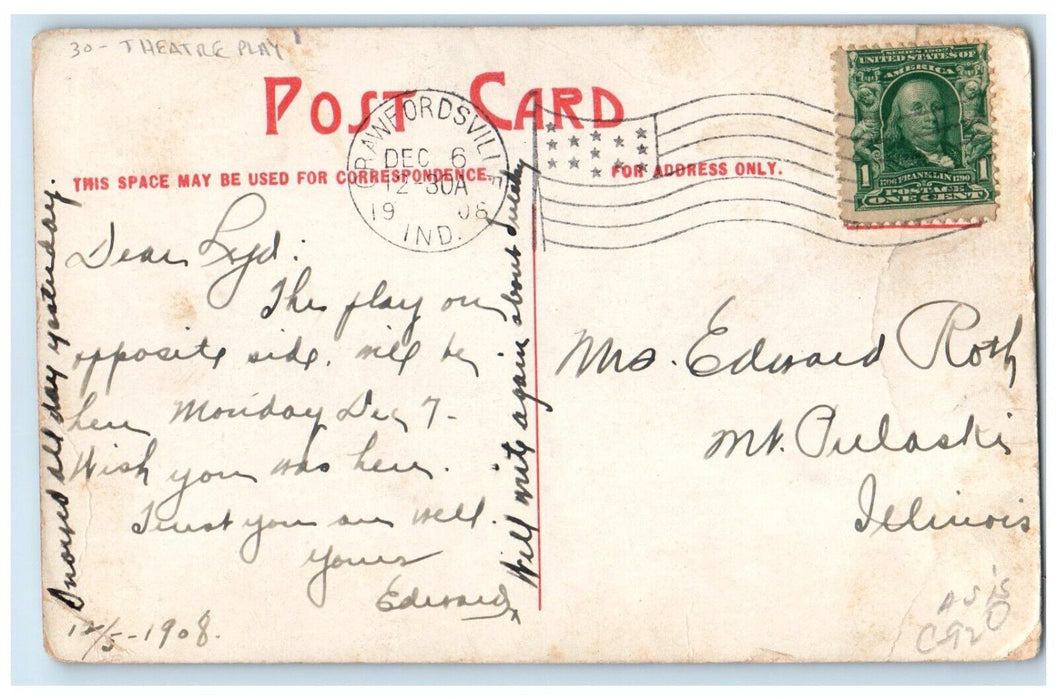 30- THEATRE PLAY
POST CARD
CRAWFORDSVILLE
DEC 6
12-30A
1908
IND.
SERIES 1902
UNITED STATES OF
AMERICA
1 1
1706 FRANKLIN 1790
POSTAGE
ONE CENT
THIS SPACE MAY BE USED FOR CORRESPONDENCE.
FOR ADDRESS ONLY.
Dear Lyd:
The play on
opposite side, will be
here Monday Dec 7-
Wish you was here.
Trust you are well.
Yours
Edward
12/5-1908.
Snowed all day yesterday.
Will write again about Tuesday
Mrs. Edward Roth
Mt. Pulaski
Illinois
AS IS
C920